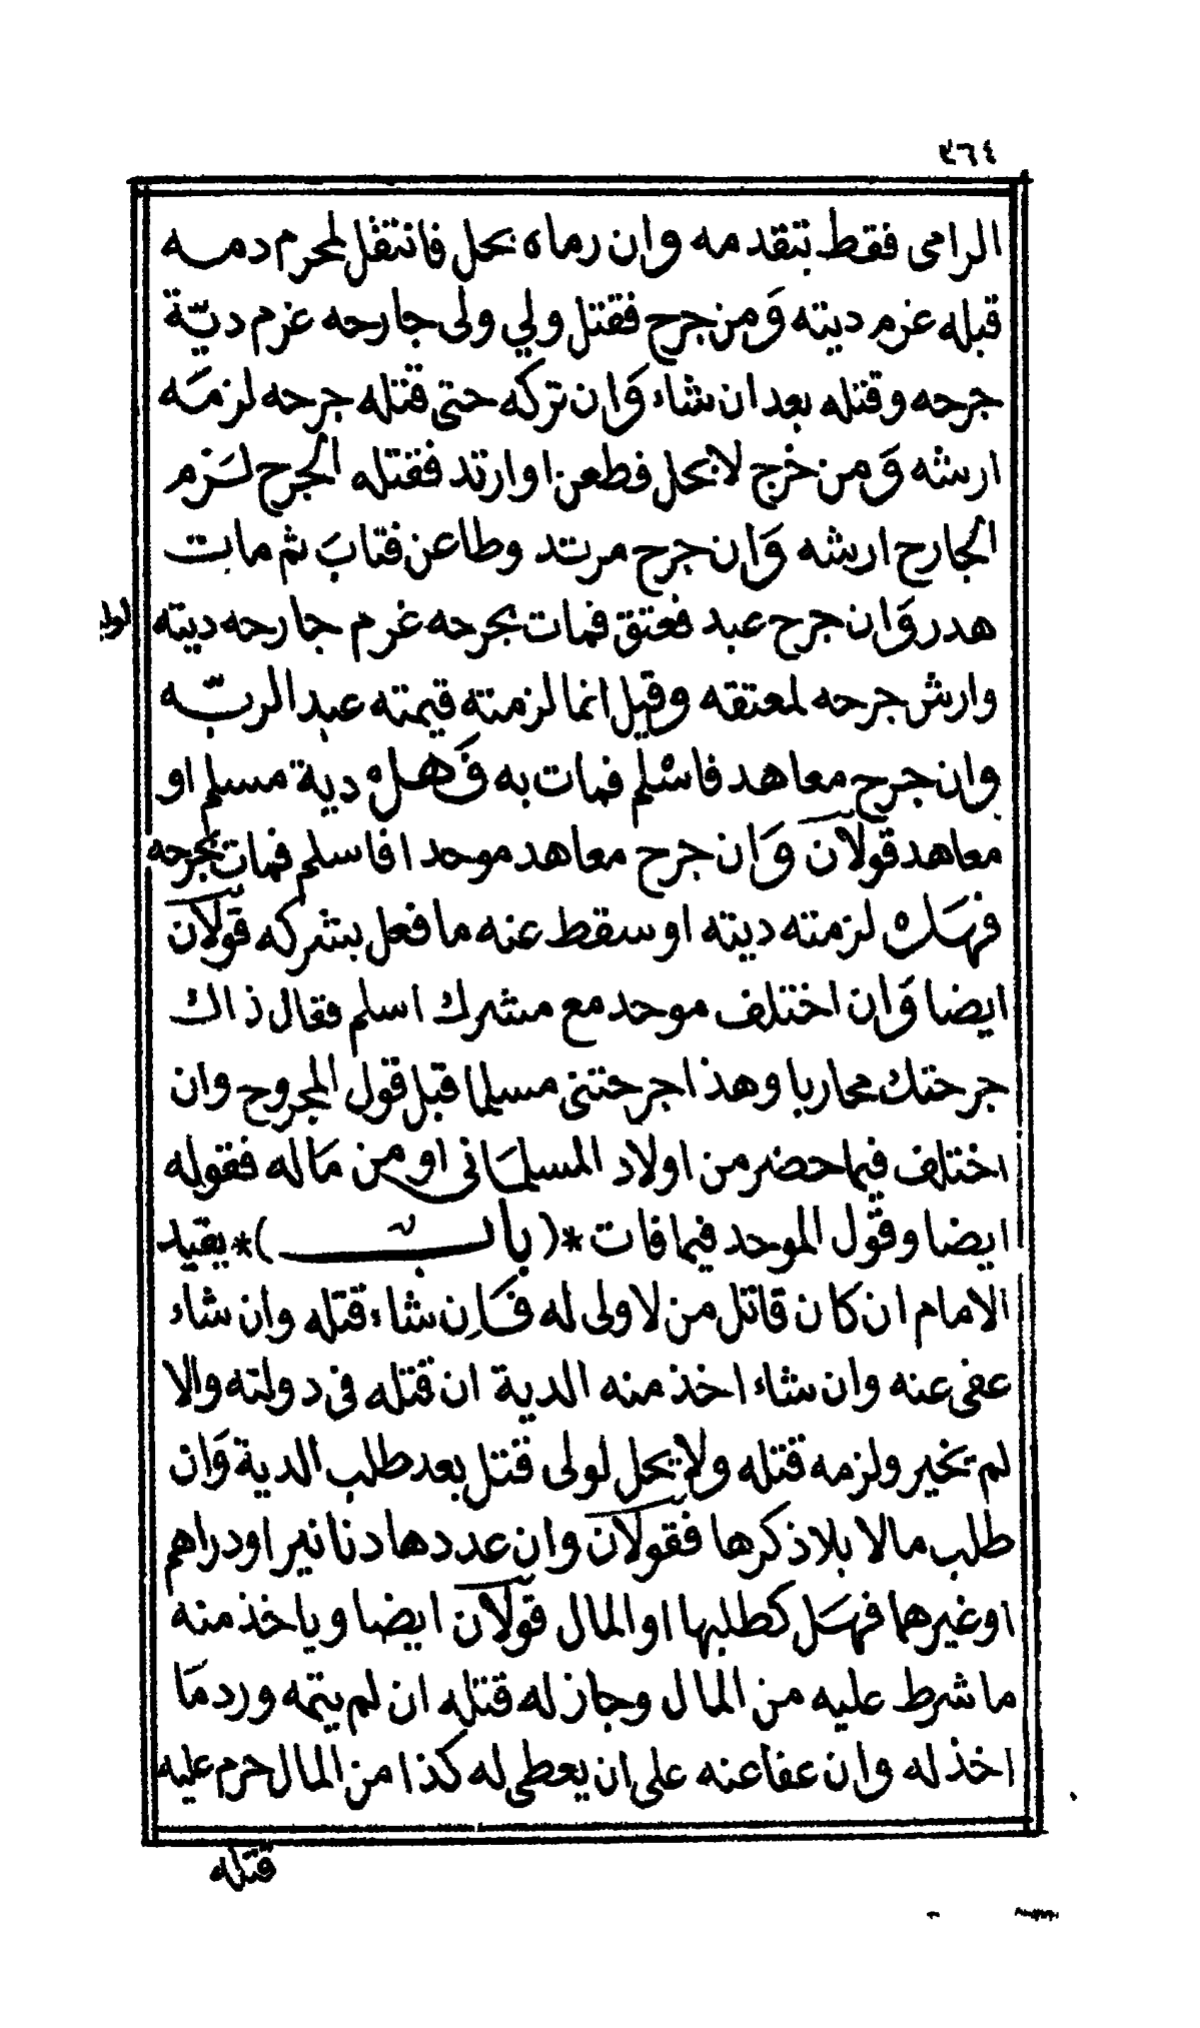 ٣٦٤
الرامى فقط بتقدمه وان رماه بحل فانتقل لمحرم دمـه
قبله غرم ديته وَمن جرح فقتل ولي ولى جارحه غرم ديّة
جرحه وقتله بعد ان شاء وَان تركه حتى قتله جرحه لزمَه
ارشه وَمن خرج لا بحل فطعن او ارتد فقتله الجرح لَزم
الجارح ارشه وَان جرح مرتد وطاعن فتابَ ثم مات
هدر وَان جرح عبد فعتق فمات بجرحه غرم جارحه ديته
وارش جرحه لمعتقه وقيل انما لزمته قيمته عبد الربّه
وان جرح معاهد فاسْلم فمات به فَهل دية مسلم او
معاهد قولان وَان جرح معاهد موحدا فاسلم فمات بجرحه
فهَل لزمته ديته او سقط عنه ما فعل بشركه قولان
ايضا وَان اختلف موحد مع مشرك اسلم فقال ذاك
جرحتك محاربا وهذا جرحتنى مسلما قبل قول المجروح وان
اختلف فيما حضر من اولاد المسلمَانى او من مَاله فقوله
ايضا وقول الموحد فيما فات *( باب )* يقيد
الامام ان كان قاتل من لا ولى له فَان شاء قتله وان شاء
عفى عنه وان شاء اخذ منه الدية ان قتله فى دولته والا
لم يخير ولزمه قتله ولا يحل لولى قتل بعد طلب الدية وَان
طلب مالا بلا ذكرها فقولان وان عددها دنانير او دراهم
او غيرهما فهَل كطلبها او المال قولان ايضا وياخذ منه
ما شرط عليه من المال وجاز له قتله ان لم يتمه ورد مَا
اخذ له وان عفا عنه على ان يعطى له كذا من المال حرم عليه
قتله